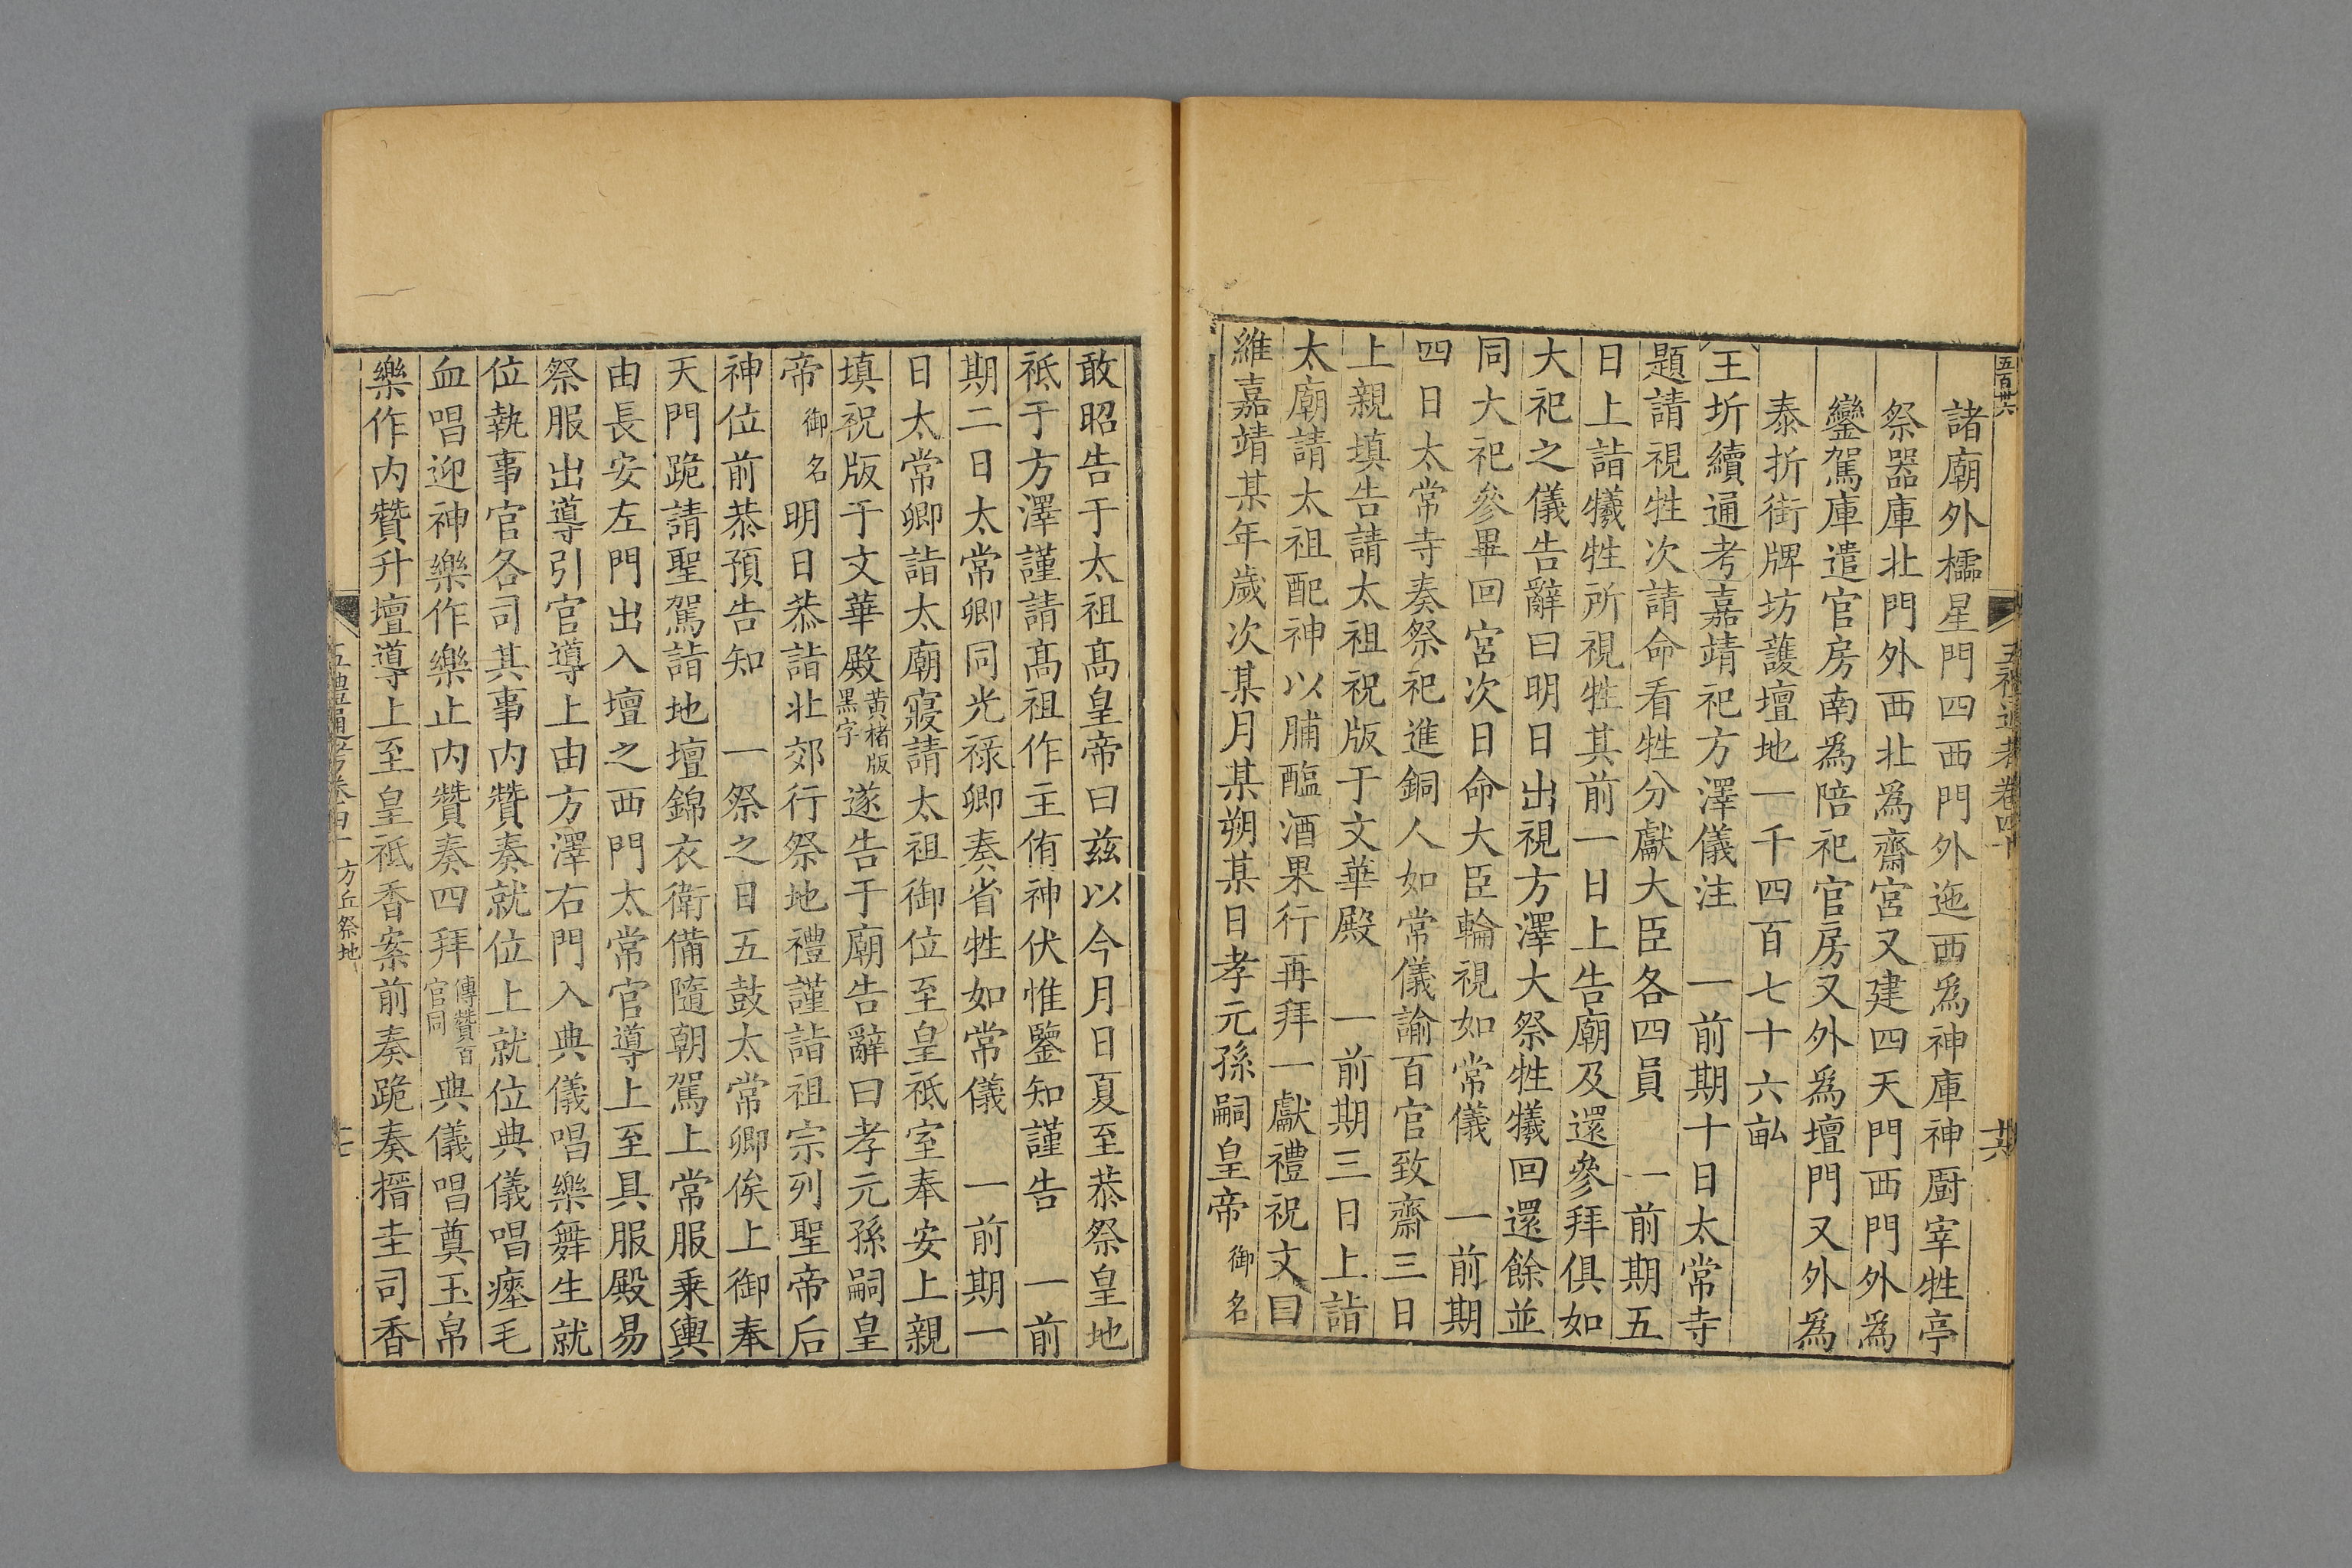 五百卅六
五禮通考卷四十
六
諸廟外櫺星門四西門外迤西爲神庫神廚宰牲亭
祭器庫北門外西北爲齋宮又建四天門西門外爲
鑾駕庫遣官房南爲陪祀官房又外爲壇門又外爲
泰折街牌坊護壇地一千四百七十六畝
王圻續通考嘉靖祀方澤儀注　一前期十日太常寺
題請視牲次請命看牲分獻大臣各四員　一前期五
日上詣犧牲所視牲其前一日上告廟及還參拜俱如
大祀之儀告辭曰明日出視方澤大祭牲犧回還餘並
同大祀參畢回宮次日命大臣輪視如常儀　一前期
四日太常寺奏祭祀進銅人如常儀諭百官致齋三日
上親填告請太祖祝版于文華殿　一前期三日上詣
太廟請太祖配神以脯醢酒果行再拜一獻禮祝文曰
維嘉靖某年歲次某月某朔某日孝元孫嗣皇帝御名
敢昭告于太祖髙皇帝曰兹以今月日夏至恭祭皇地
祗于方澤謹請髙祖作主侑神伏惟鑒知謹告　一前
期二日太常卿同光禄卿奏省牲如常儀　一前期一
日太常卿詣太廟寢請太祖御位至皇祗室奉安上親
填祝版于文華殿黄楮版黑字遂告于廟告辭曰孝元孫嗣皇
帝御名明日恭詣北郊行祭地禮謹詣祖宗列聖帝后
神位前恭預告知　一祭之日五鼓太常卿俟上御奉
天門跪請聖駕詣地壇錦衣衛備隨朝駕上常服乘輿
由長安左門出入壇之西門太常官導上至具服殿易
祭服出導引官導上由方澤右門入典儀唱樂舞生就
位執事官各司其事内贊奏就位上就位典儀唱瘞毛
血唱迎神樂作樂止内贊奏四拜傳贊百官同典儀唱奠玉帛
樂作内贊升壇導上至皇祗香案前奏跪奏搢圭司香
五禮通考卷四十　方丘祭地
七